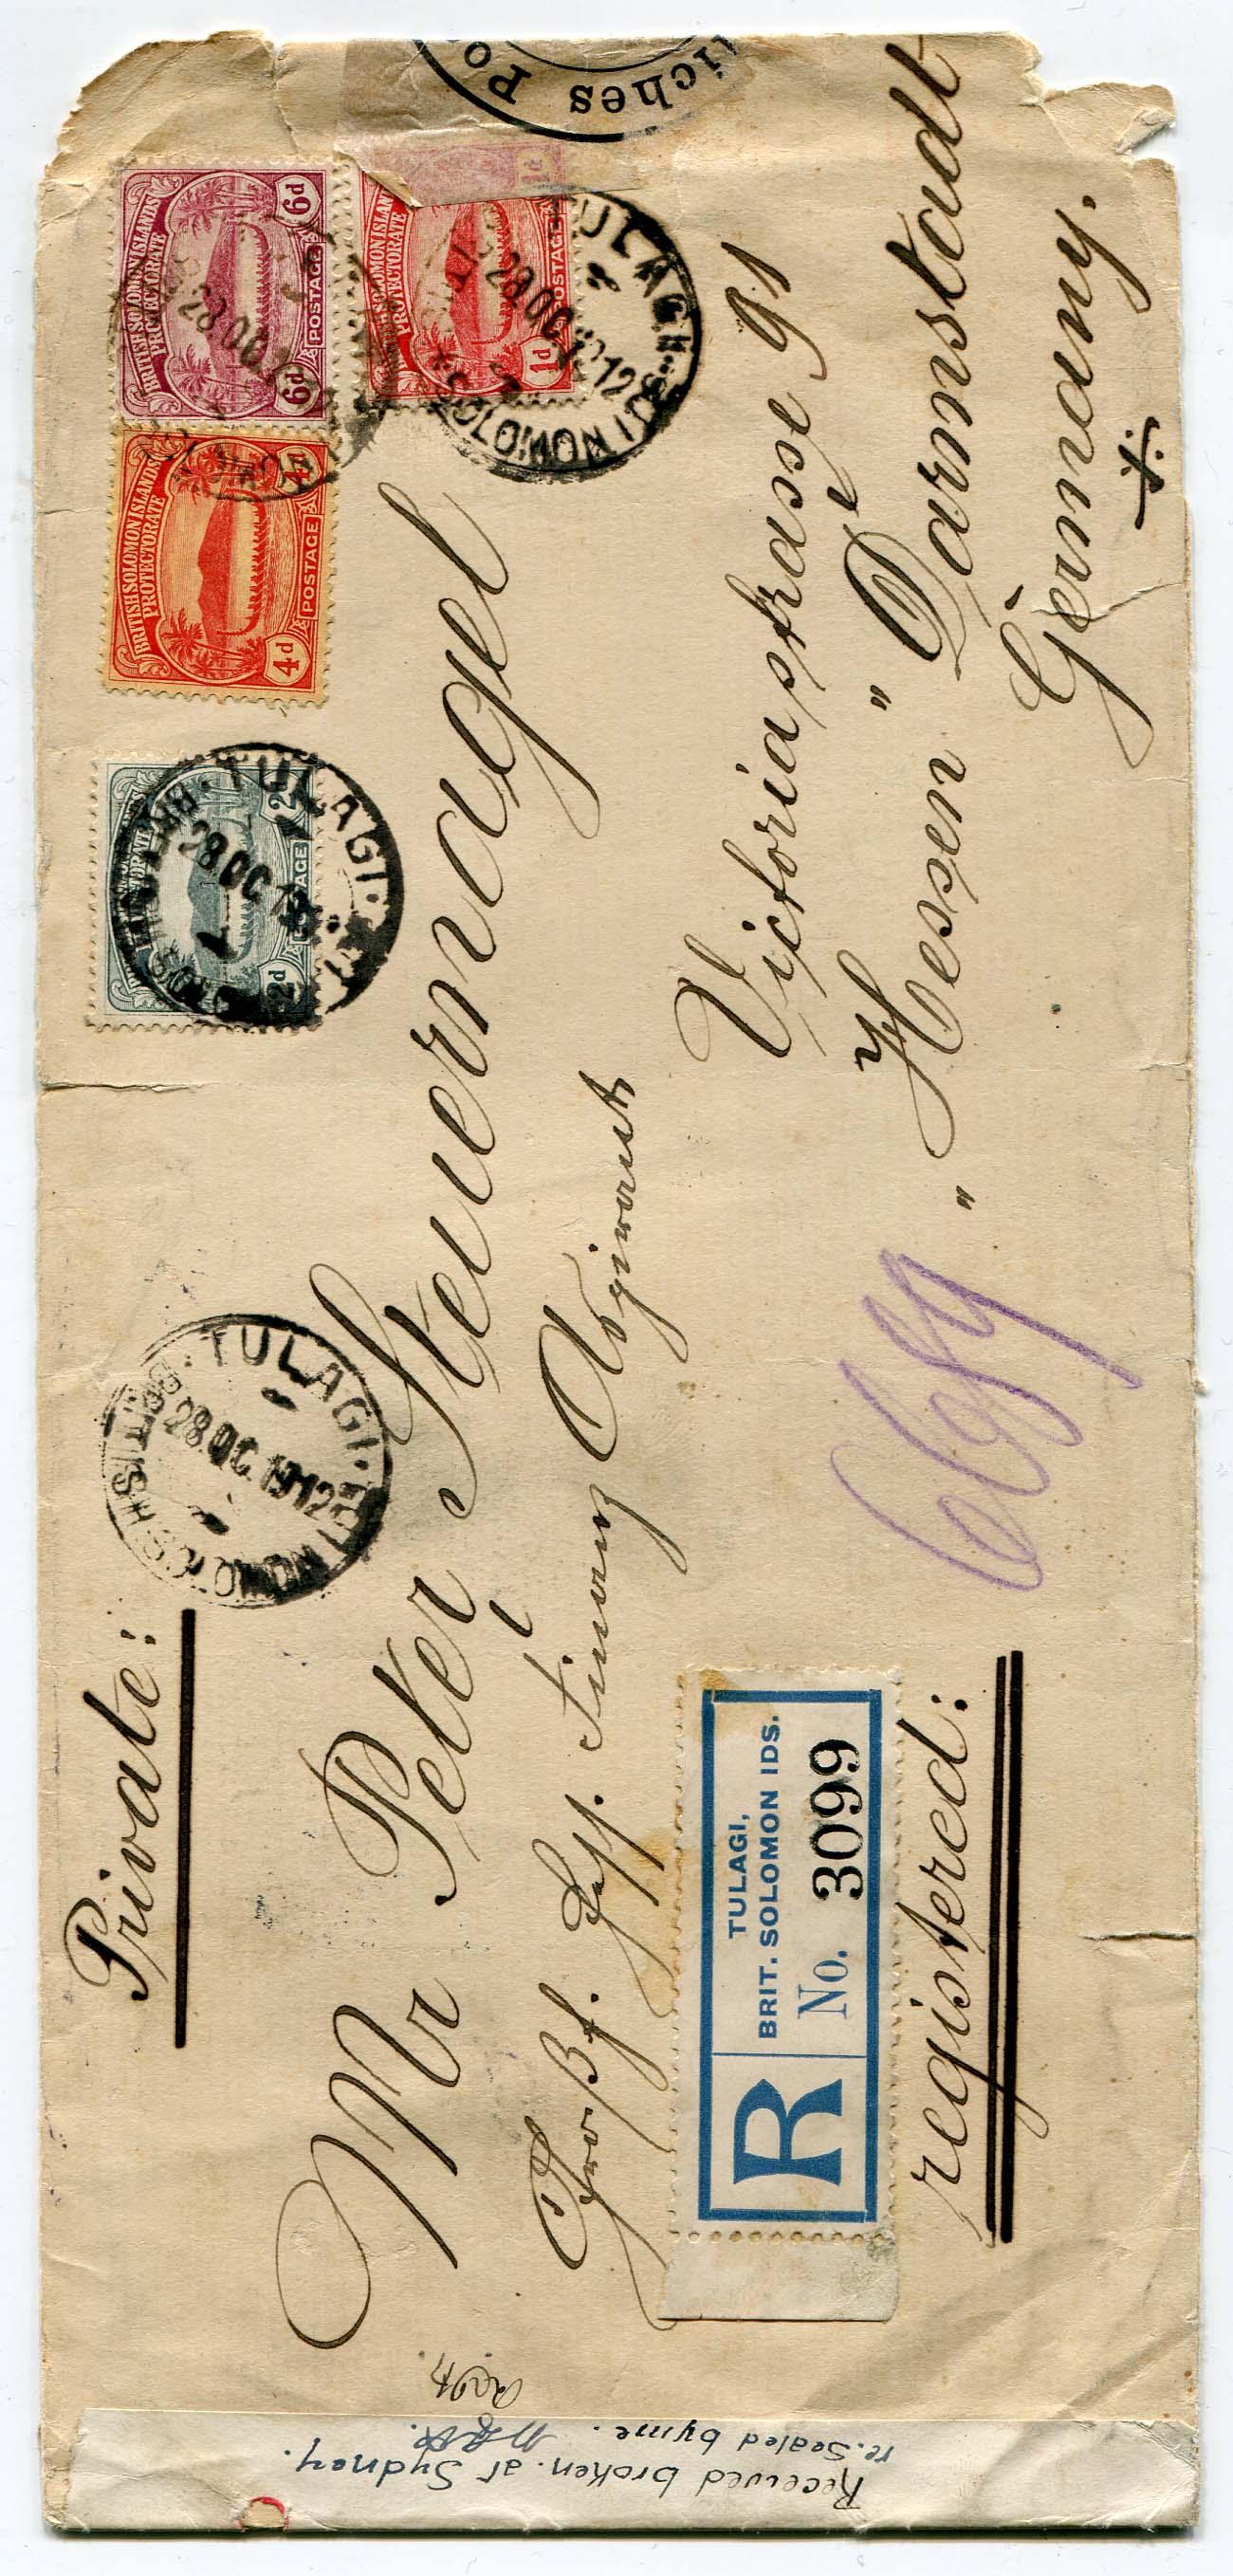 Private:
Mr Peter Steuernagel
Großh. Hess. Finanz Aspirant
Victoriastrasse 91
"Hessen" Darmstadt
Germany.
registered:
R
TULAGI,
BRIT. SOLOMON IDS.
No. 3099
BRITISH SOLOMON ISLANDS
PROTECTORATE
2d POSTAGE 2d
BRITISH SOLOMON ISLANDS
PROTECTORATE
4d POSTAGE 4d
BRITISH SOLOMON ISLANDS
PROTECTORATE
6d POSTAGE 6d
BRITISH SOLOMON ISLANDS
PROTECTORATE
1d POSTAGE
TULAGI. BRITISH SOLOMON IS
28 OC 1912
TULAGI.
28 OC
TULAGI. SOLOMON
28 OC 1912
28 OC
iches Po
Received broken at Sydney.
re-sealed by me.